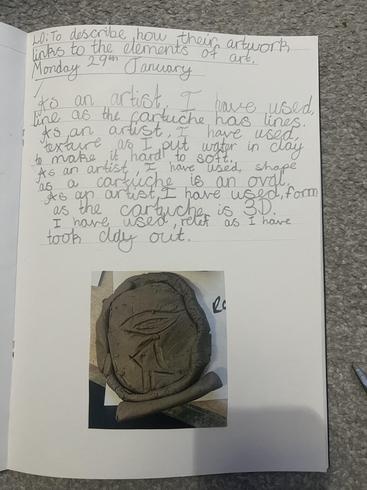 LO: To describe how their artwork
links to the elements of art.
Monday 29th January
As an artist, I have used,
line as the cartuche has lines.
As an artist, I have used,
texture as I put water in clay
to make it hard to soft.
As an artist, I have used, shape
as a cartuche is an oval.
As an artist, I have used, form
as the cartuche is 3D.
I have used, relief as I have
took clay out.